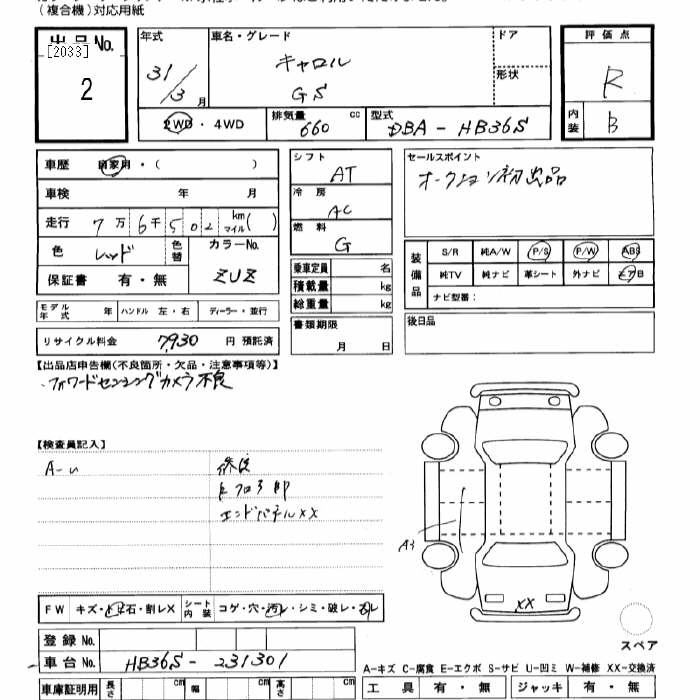 (複合機)対応用紙
出品No. [2033]
2
年式 31/3月
車名・グレード キャロル GS
ドア
形状
評価点 R
内装 B
2WD・4WD
排気量 660 cc
型式 DBA-HB36S
車歴 自家用・( )
車検 年 月
走行 7万6千502 km マイル( )
色 レッド 色替 カラーNo. ZUZ
保証書 有・無
シフト AT
冷房 AC
燃料 G
乗車定員 名
積載量 kg
総重量 kg
書類期限 月 日
セールスポイント
オークション初出品
装備品 S/R 純A/W P/S P/W ABS
純TV 純ナビ 革シート 外ナビ エアB
ナビ型番:
後日品
モデル年式 年 ハンドル 左・右 ディーラー・並行
リサイクル料金 7,930 円 預託済
【出品店申告欄(不良箇所・欠品・注意事項等)】
・フォワードセンシングカメラ不良
【検査員記入】
A-U
修復
エンドパネルXX
A3
XX
スペア
FW キズ・飛石・割レX シート内装 コゲ・穴・汚レ・シミ・破レ・
登録No.
車台No. HB36S-231301
車庫証明用 長さ cm 幅 cm 高さ cm
A-キズ C-腐食 E-エクボ S-サビ U-凹ミ W-補修 XX-交換済
工具 有・無 ジャッキ 有・無